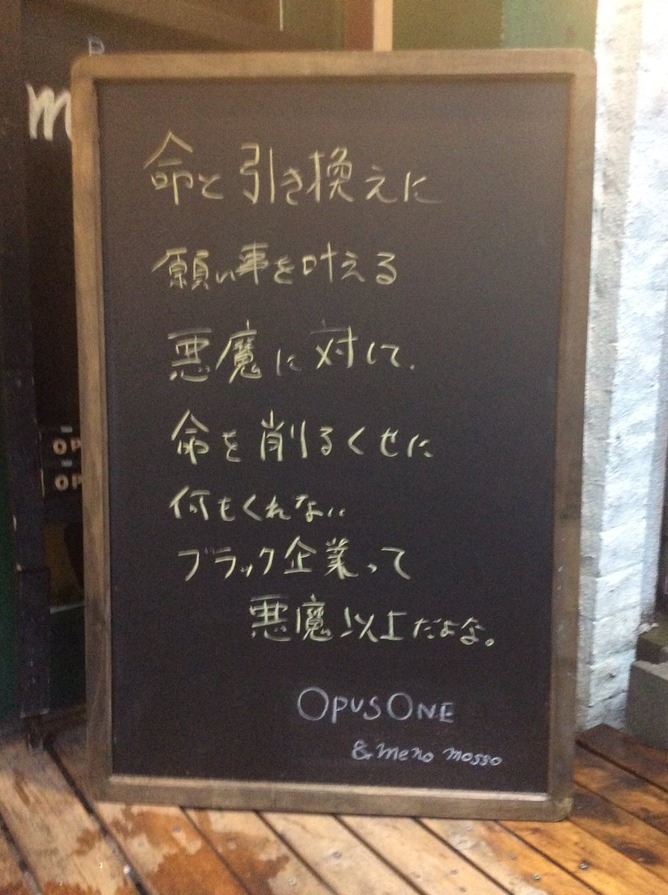 命と引き換えに
願い事を叶える
悪魔に対して、
命を削るくせに
何もくれない
ブラック企業って
悪魔以上だよな。
OPUSONE
& meno mosso
m
OP
OP